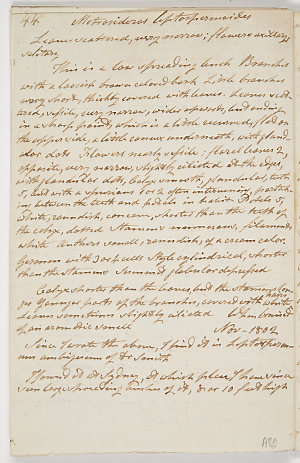 44. Metrosideros leptospermoides
Leaves scattered, very narrow; flowers axillary,
solitary
This is a low spreading bush Branches
with a brown colored bark Little branches
very short, thickly covered with leaves. Leaves scatt
ered, sessile, very narrow, wider upwards, and ending
in a sharp point, which is a little recurved, flat on
the upper side, a little convex underneath, with gland
ular dots Flowers nearly sessile: floral leaves 2,
opposite, very narrow, slightly ciliated at the edges,
with glandular dots, Calyx smooth, glandular, teeth
5, and with a spurious 1 or 2 often intervening, project
ing between the teeth and petals in habit Petals 5,
white, roundish, concave, shorter than the teeth of
the calyx, dotted Stamens numerous, filaments
white Anthers small, roundish, of a cream color.
Germen with 3 or 4 cells Style cylindrical, shorter
than the stamens Summit globular depressed
Calyx shorter than the leaves, and the stamens lon
ger Younger parts of the branches, covered with white hairs
Leaves sometimes slightly ciliated When bruised
of an aromatic smell
Nov - 1802
Since I wrote the above, I find it is Leptosperm
um ambiguum of Dr Smith
I found it at Sydney, at which place I have since
seen large spreading bushes of it, 8 or 10 feet high